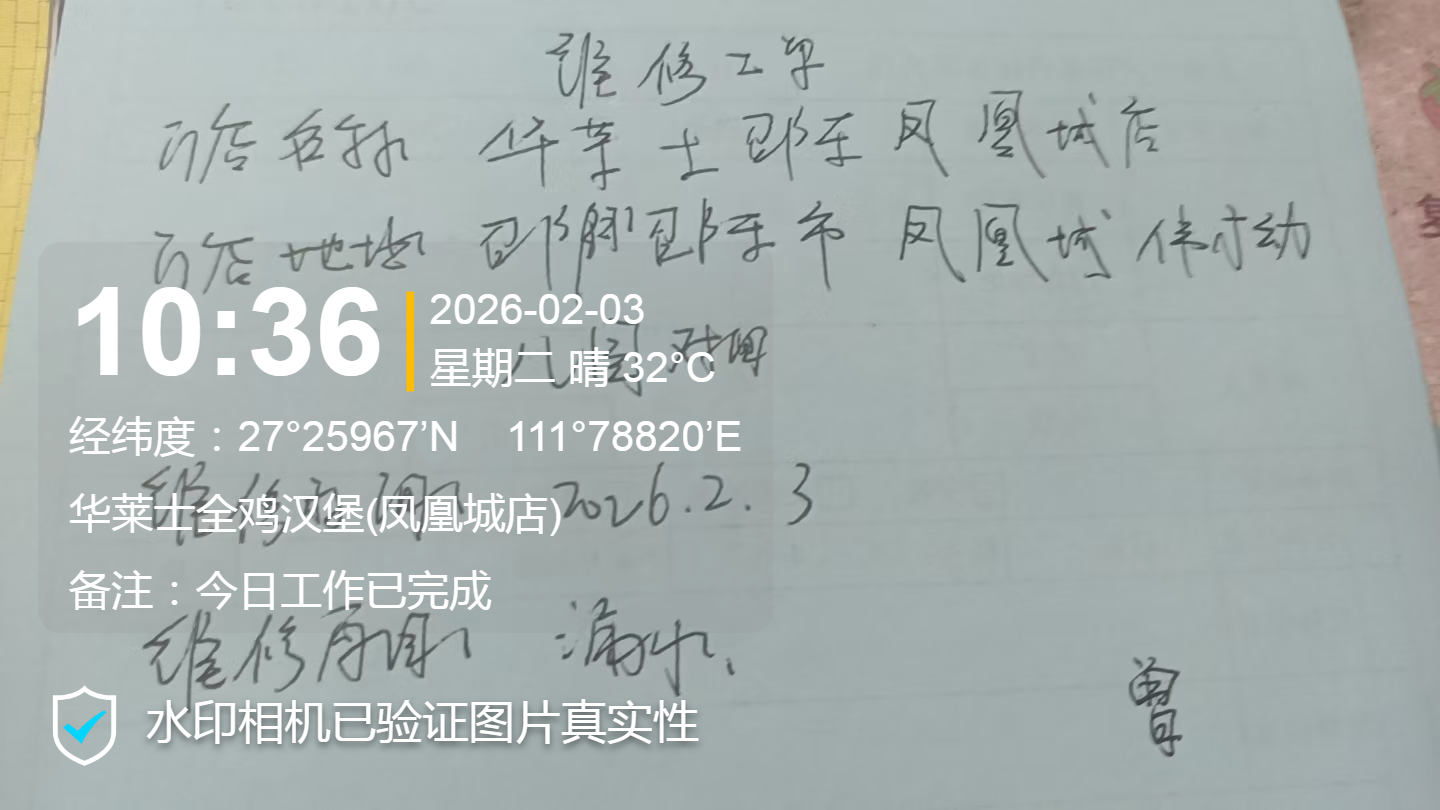 维修工单
门店名称 华莱士邵东凤凰城店
门店地址 邵阳邵东市凤凰城体育动
公园对面
10:36
2026-02-03
星期二 晴 32°C
经纬度：27°25967’N 111°78820’E
维修 2026.2.3
华莱士全鸡汉堡(凤凰城店)
备注：今日工作已完成
维修原因 漏水、
曾
水印相机已验证图片真实性